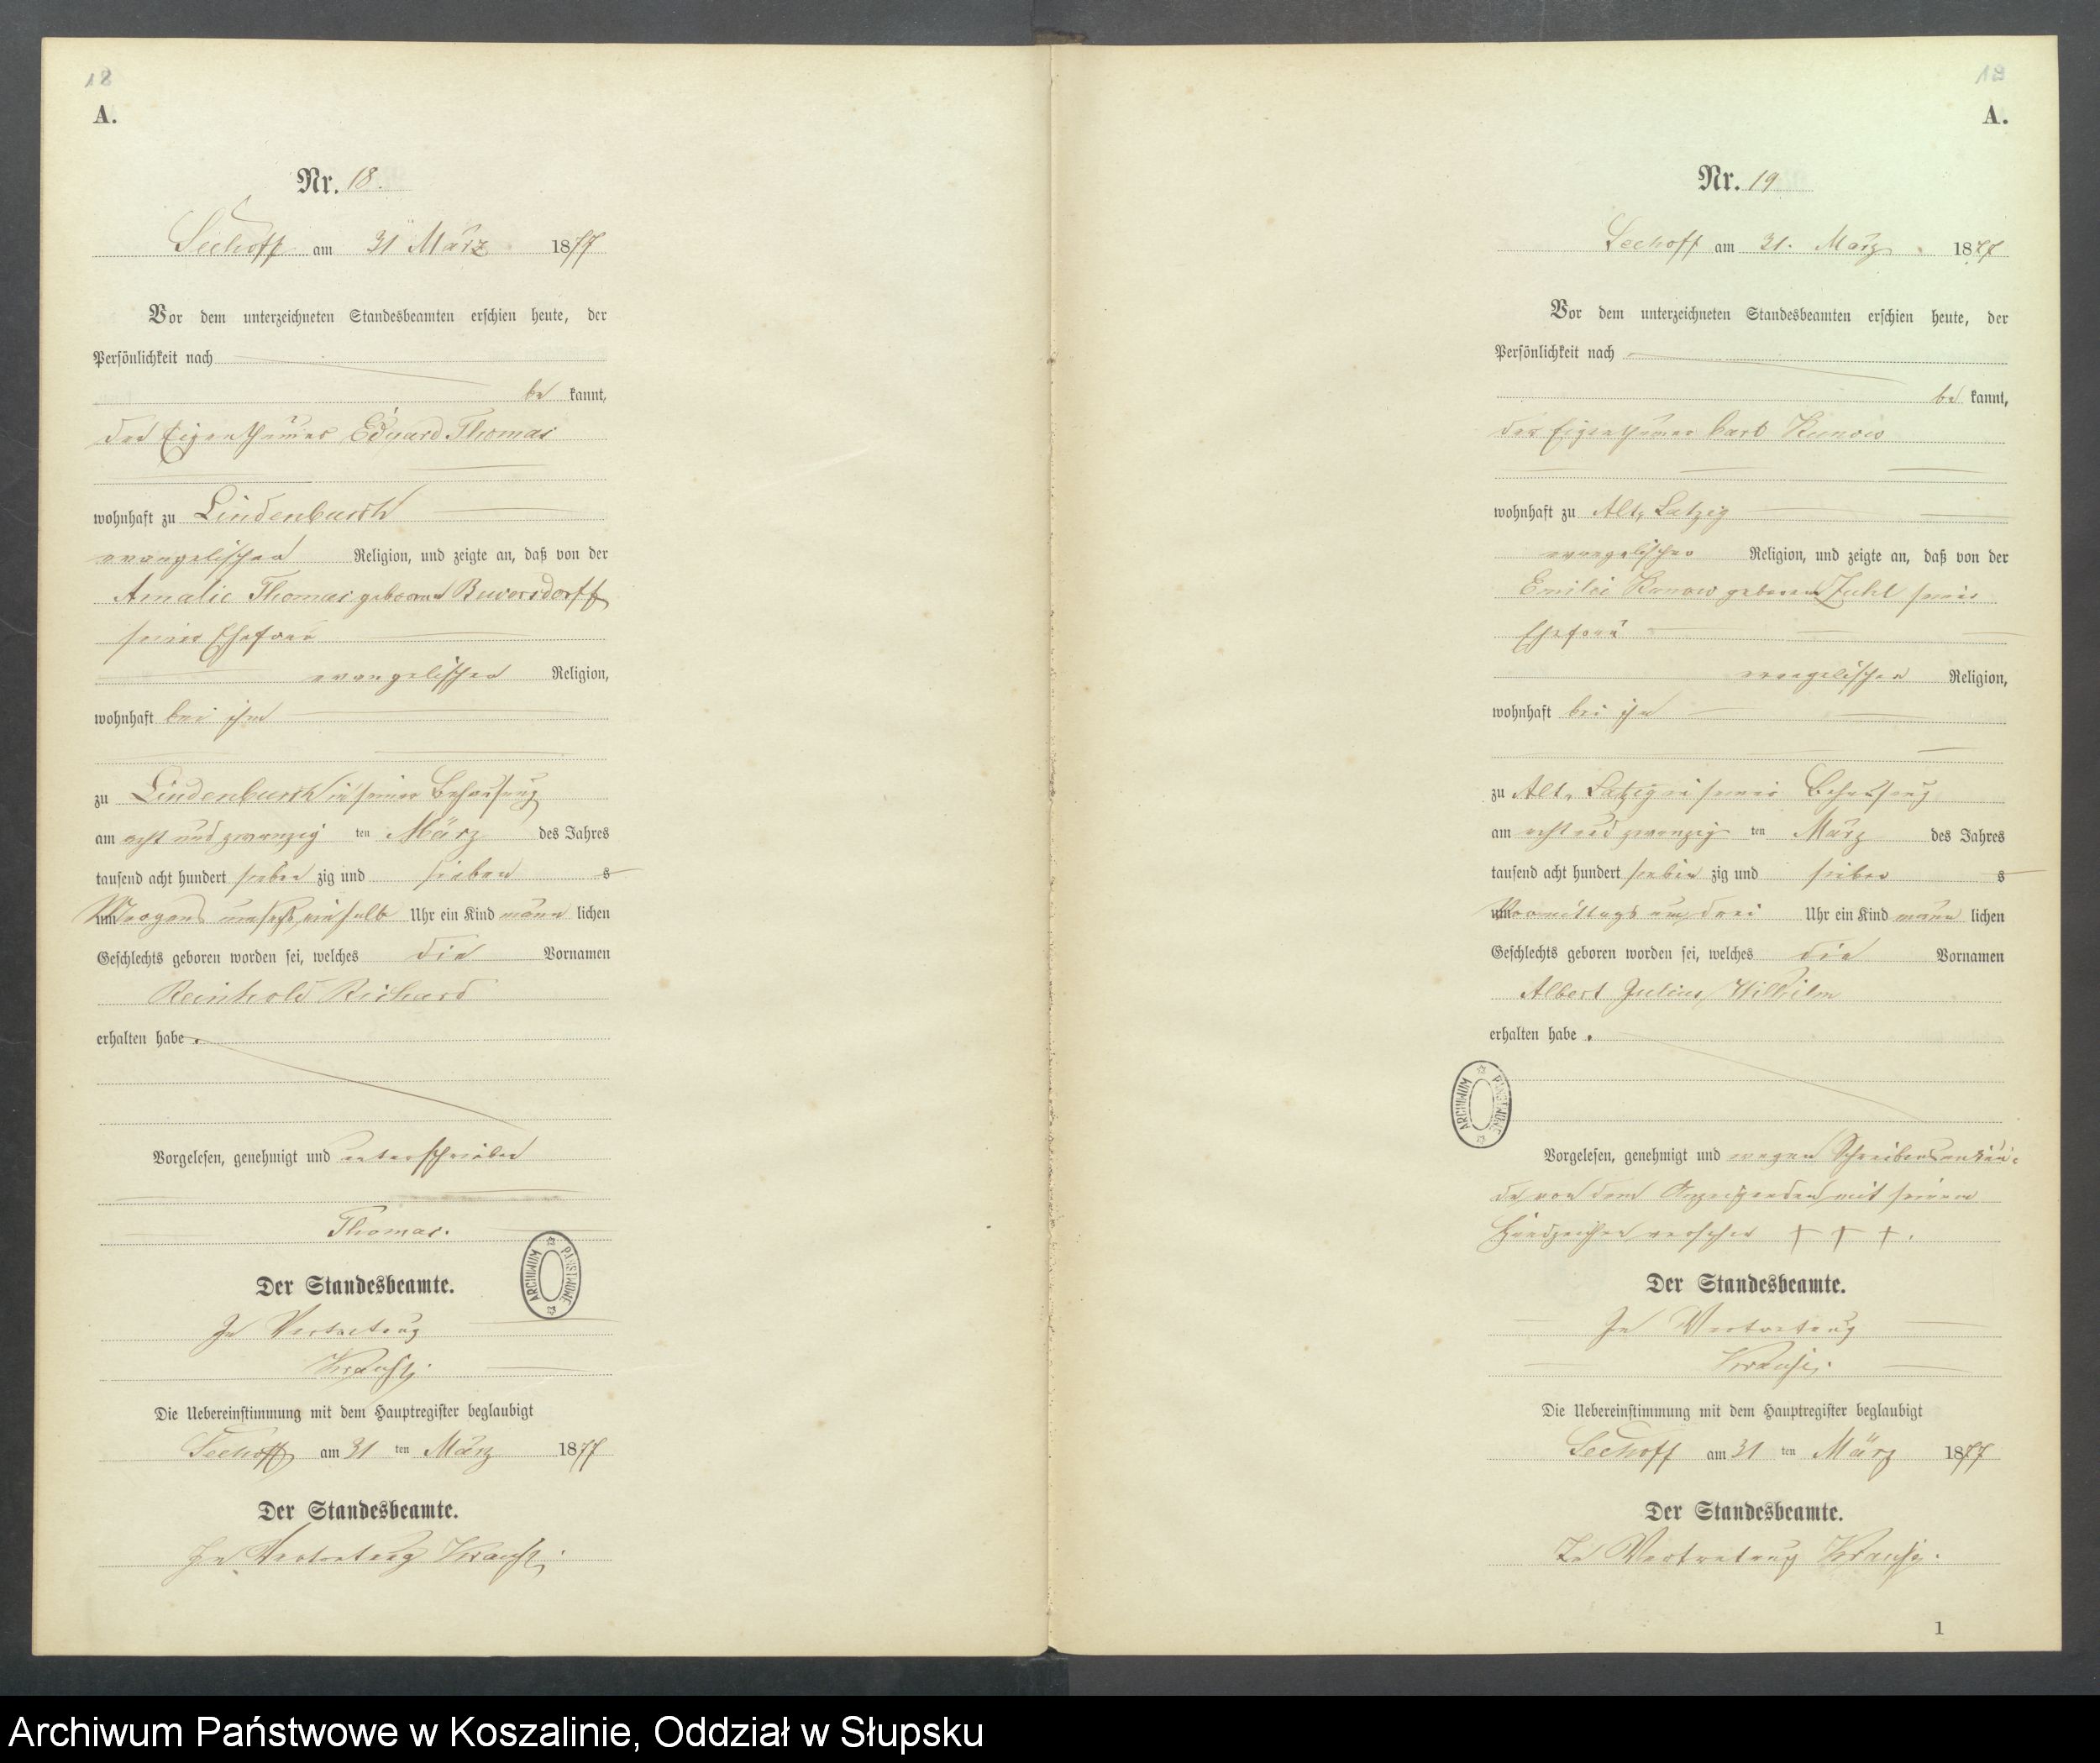 18
A.
Nr. 18.
Seehoff am 31 März 1877
Vor dem unterzeichneten Standesbeamten erschien heute, der
Persönlichkeit nach
be kannt,
der Eigenthümer Eduard Thomas
wohnhaft zu Lindenbusch
evangelischer Religion, und zeigte an, daß von der
Amalie Thomas geborene Bewersdorff
seiner Ehefrau
evangelischer Religion,
wohnhaft bei ihm
zu Lindenbusch in seiner Behausung
am acht und zwanzig ten März des Jahres
tausend acht hundert sieben zig und sieben s
um Morgens um ein halb Uhr ein Kind männ lichen
Geschlechts geboren worden sei, welches die Vornamen
Reinhold Richard
erhalten habe.
Vorgelesen, genehmigt und unterschrieben
Thomas.
Der Standesbeamte.
In Vertretung
Krause.
Die Uebereinstimmung mit dem Hauptregister beglaubigt
Seehoff am 31 ten März 1877
Der Standesbeamte.
In Vertretung Krause.
ARCHIWUM PAŃSTWOWE
19
A.
Nr. 19
Seehoff am 31. März 1877
Vor dem unterzeichneten Standesbeamten erschien heute, der
Persönlichkeit nach
be kannt,
der Eigenthümer Carl Kunow
wohnhaft zu Alt-Latzig
evangelischer Religion, und zeigte an, daß von der
Emilie Kunow geborene Zuhl seiner
Ehefrau
evangelischer Religion,
wohnhaft bei ihm
zu Alt-Latzig in seiner Behausung
am acht und zwanzig ten März des Jahres
tausend acht hundert sieben zig und sieben s
um Vormittags um drei Uhr ein Kind männ lichen
Geschlechts geboren worden sei, welches die Vornamen
Albert Julius Wilhelm
erhalten habe.
Vorgelesen, genehmigt und wegen Schreibensunkun-
de von dem Anzeigenden mit seinem
Handzeichen versehen + + +.
Der Standesbeamte.
In Vertretung
Krause.
Die Uebereinstimmung mit dem Hauptregister beglaubigt
Seehoff am 31 ten März 1877
Der Standesbeamte.
In Vertretung Krause.
1
ARCHIWUM PAŃSTWOWE
Archiwum Państwowe w Koszalinie, Oddział w Słupsku